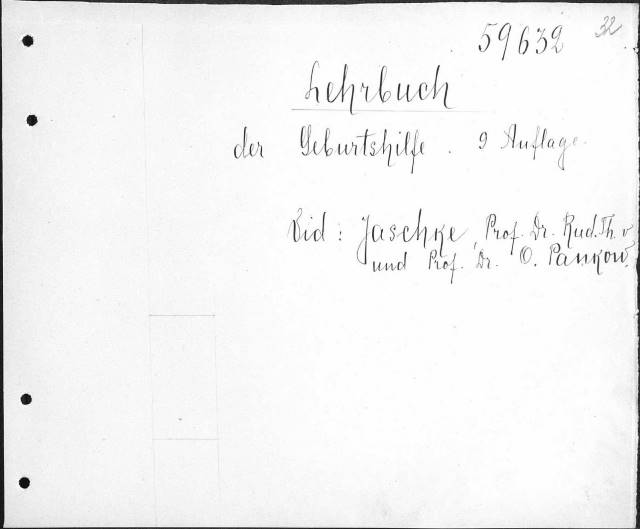 59632 32
Lehrbuch
der Geburtshilfe. 9 Auflage.
Vid: Jaschke, Prof. Dr. Rud. Th. v
und Prof. Dr. O. Pankow.